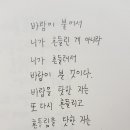 바람이 불어서
니가 흔들린 게 아니라
니가 흔들려서
바람이 분 것이다.
바람을 탓한 자는
또 다시 흔들리고
흔들림을 탓한 자는